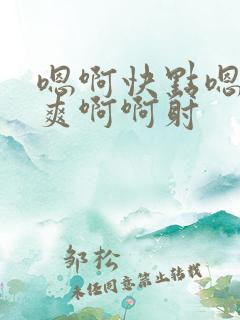 嗯啊快點嗯
爽啊啊射
邹松
未经同意禁止转载